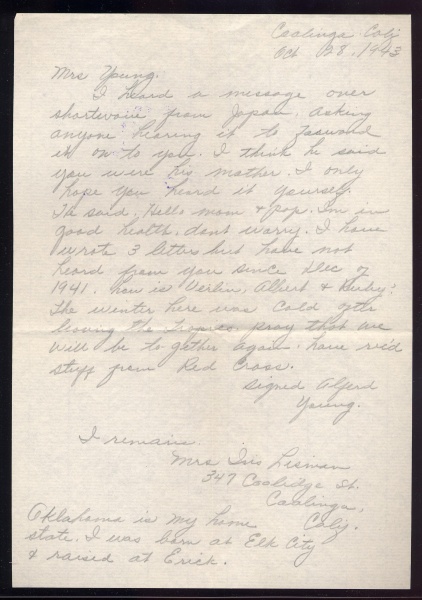 Coalinga Calif
Oct 28, 1943
Mrs Young.
I heard a message over
shortwave from Japan, asking
anyone hearing it to forward
it on to you. I think he said
you were his mother. I only
hope you heard it yourself.
He said. Hello mom & pop. I'm in
good health. dont worry. I have
wrote 3 letters but have not
heard from you since Dec of
1941. how is Verlin, Albert &
The winter here was cold after
leaving the tropics. pray that we
will be to gether again. have rec'd
stuff from Red Cross.
Signed Alferd
Young.
I remain.
Mrs Iris
347 Coolidge St.
Coalinga,
Calif.
Oklahoma is my home
state. I was born at Elk City
& raised at Erick.